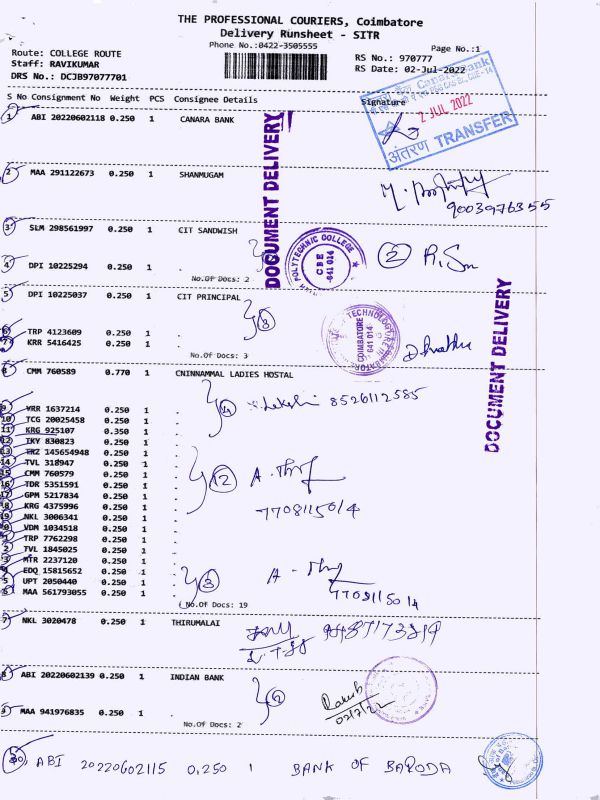 THE PROFESSIONAL COURIERS, Coimbatore
Delivery Runsheet - SITR
Phone No.:0422-3505555
Page No.:1
Route: COLLEGE ROUTE
Staff: RAVIKUMAR
DRS No.: DCJB97077701
RS No.: 970777
RS Date: 02-Jul-2022
S No Consignment No Weight PCS Consignee Details Signature
1 ABI 20220602118 0.250 1 CANARA BANK
2 JUL 2022
अंतरण TRANSFER
DOCUMENT DELIVERY
2 MAA 291122673 0.250 1 SHANMUGAM
9003976355
3 SLM 298561997 0.250 1 CIT SANDWISH
4 DPI 10225294 0.250 1 .
No.Of Docs: 2
POLYTECHNIC COLLEGE
CBE
641 014
2
5 DPI 10225037 0.250 1 CIT PRINCIPAL
6 TRP 4123609 0.250 1 .
7 KRR 5416425 0.250 1 .
No.Of Docs: 3
3
COIMBATORE
641 014
DOCUMENT DELIVERY
8 CMM 760589 0.770 1 CNINNAMMAL LADIES HOSTAL
9 VRR 1637214 0.250 1 .
10 TCG 20025458 0.250 1 .
11 KRG 925107 0.350 1 .
12 IKY 830823 0.250 1 .
13 TRZ 145654948 0.250 1 .
14 TVL 318947 0.250 1 .
15 CMM 760579 0.250 1 .
16 TDR 5351591 0.250 1 .
17 GPM 5217834 0.250 1 .
8 KRG 4375996 0.250 1 .
19 NKL 3006341 0.250 1 .
0 VDM 1034518 0.250 1 .
1 TRP 7762298 0.250 1 .
2 TVL 1845025 0.250 1 .
MTR 2237120 0.250 1 .
EDQ 15815652 0.250 1 .
5 UPT 2050440 0.250 1 .
6 MAA 561793055 0.250 1 .
No.Of Docs: 19
4
8526112585
12
7708115014
3
7708115014
7 NKL 3020478 0.250 1 THIRUMALAI
8 ABI 20220602139 0.250 1 INDIAN BANK
9 MAA 941976835 0.250 1 .
No.Of Docs: 2
2
02/7/22
30, ABI 20220602115 0.250 1 BANK OF BARODA